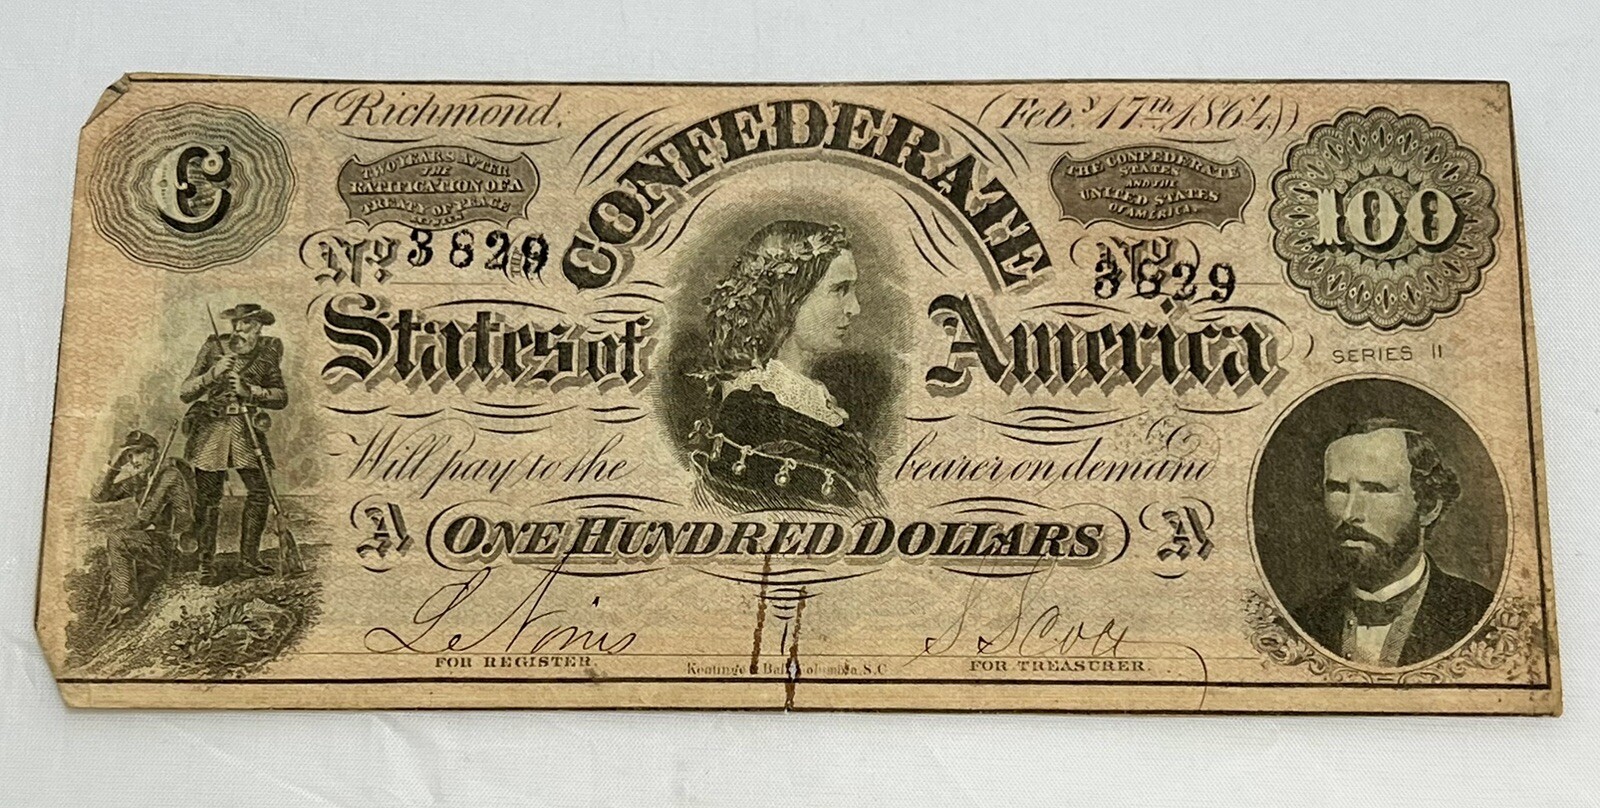 Richmond. Feby 17th 1864.
C
TWO YEARS AFTER
THE
RATIFICATION OF A
TREATY OF PEACE
THE CONFEDERATE
STATES
AND THE
UNITED STATES
OF AMERICA.
100
No 3829
CONFEDERATE
No 3829
States of America
SERIES 11
Will pay to the bearer on demand
A ONE HUNDRED DOLLARS A
FOR REGISTER.
Keatinge & Ball Columbia, S.C
FOR TREASURER.